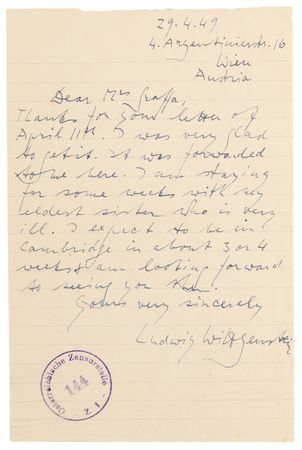 29.4.49
4. Argentinierstr. 16
Wien
Austria
Dear Mrs Sraffa,
Thanks for your letter of
April 11th. I was very glad
to get it. It was forwarded
to me here. I am staying
for some weeks with my
eldest sister who is very
ill. I expect to be in
Cambridge in about 3 or 4
weeks & am looking forward
to seeing you then.
Yours very sincerely
Ludwig Wittgenstein
Österreichische Zensurstelle
144
- Z 1 -